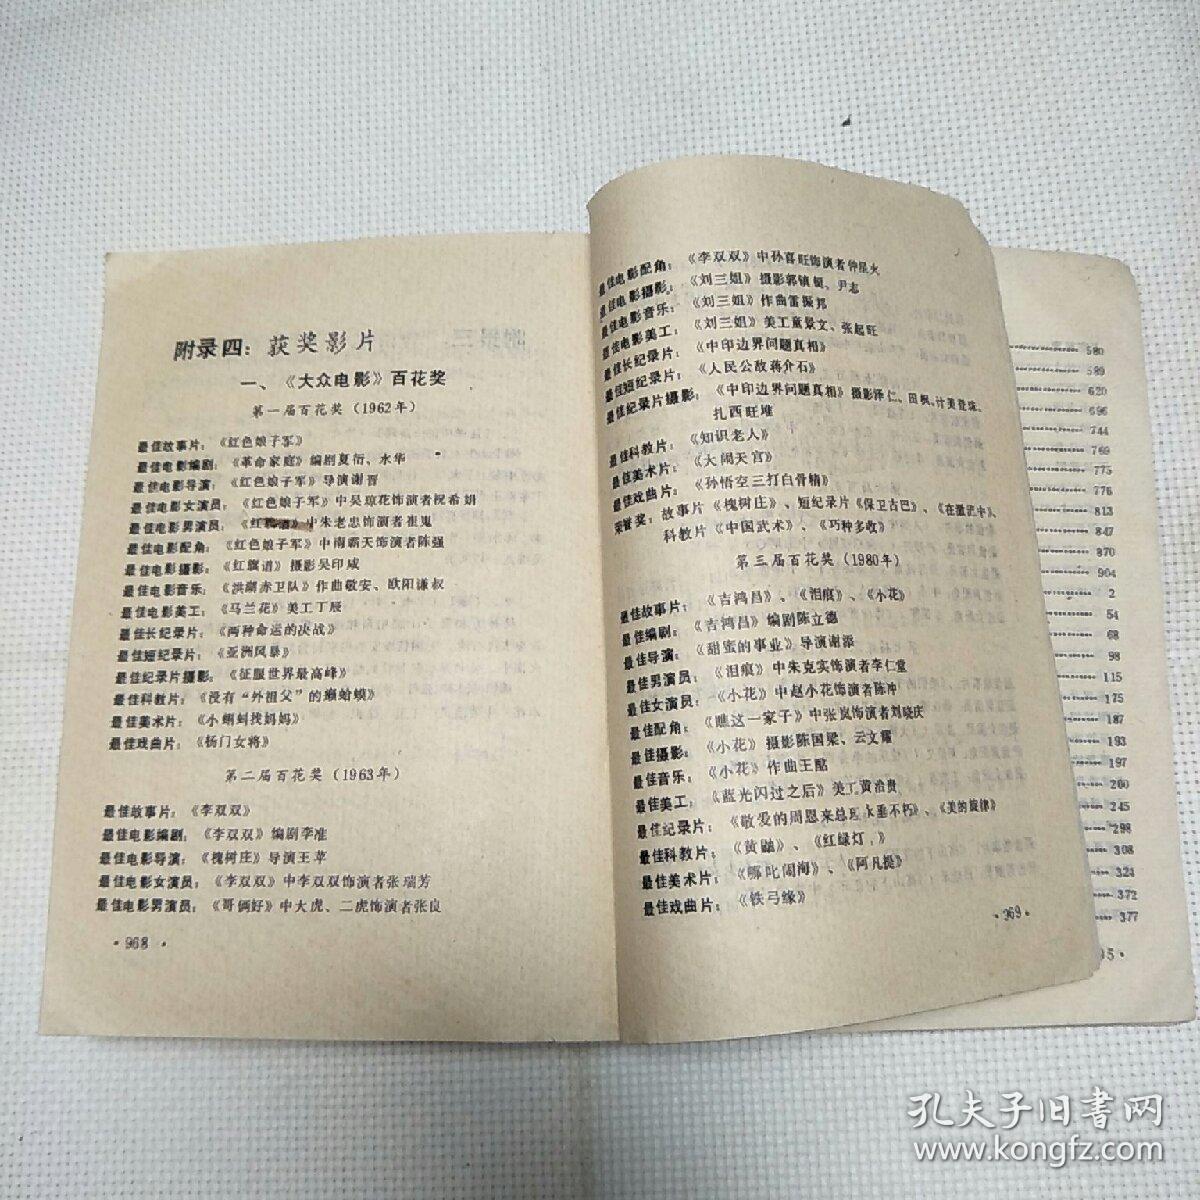 附录四：获奖影片
一、《大众电影》百花奖
第一届百花奖（1962年）
最佳故事片：《红色娘子军》
最佳电影编剧：《革命家庭》编剧夏衍、水华
最佳电影导演：《红色娘子军》导演谢晋
最佳电影女演员：《红色娘子军》中吴琼花饰演者祝希娟
最佳电影男演员：《红旗谱》中朱老忠饰演者崔嵬
最佳电影配角：《红色娘子军》中南霸天饰演者陈强
最佳电影摄影：《红旗谱》摄影吴印咸
最佳电影音乐：《洪湖赤卫队》作曲敬安、欧阳谦叔
最佳电影美工：《马兰花》美工丁辰
最佳长纪录片：《两种命运的决战》
最佳短纪录片：《亚洲风暴》
最佳纪录片摄影：《征服世界最高峰》
最佳科教片：《没有“外祖父”的癞蛤蟆》
最佳美术片：《小蝌蚪找妈妈》
最佳戏曲片：《杨门女将》
第二届百花奖（1963年）
最佳故事片：《李双双》
最佳电影编剧：《李双双》编剧李准
最佳电影导演：《槐树庄》导演王苹
最佳电影女演员：《李双双》中李双双饰演者张瑞芳
最佳电影男演员：《哥俩好》中大虎、二虎饰演者张良
·968·
最佳电影配角：《李双双》中孙喜旺饰演者仲星火
最佳电影摄影：《刘三姐》摄影郭镇铤、尹志
最佳电影音乐：《刘三姐》作曲雷振邦
最佳电影美工：《刘三姐》美工童景文、张起旺
最佳长纪录片：《中印边界问题真相》
最佳短纪录片：《人民公敌蒋介石》
最佳纪录片摄影：《中印边界问题真相》摄影泽仁、田枫、计美登珠、
扎西旺堆
最佳科教片：《知识老人》
最佳美术片：《大闹天宫》
最佳戏曲片：《孙悟空三打白骨精》
荣誉奖：故事片《槐树庄》、短纪录片《保卫古巴》、《在激流中》、
科教片《中国武术》、《巧种多收》
第三届百花奖（1980年）
最佳故事片：《吉鸿昌》、《泪痕》、《小花》
最佳编剧：《吉鸿昌》编剧陈立德
最佳导演：《甜蜜的事业》导演谢添
最佳男演员：《泪痕》中朱克实饰演者李仁堂
最佳女演员：《小花》中赵小花饰演者陈冲
最佳配角：《瞧这一家子》中张岚饰演者刘晓庆
最佳摄影：《小花》摄影陈国梁、云文耀
最佳音乐：《小花》作曲王酩
最佳美工：《蓝光闪过之后》美工黄治贵
最佳纪录片：《敬爱的周恩来总理永垂不朽》、《美的旋律》
最佳科教片：《黄鼬》、《红绿灯下》
最佳美术片：《哪吒闹海》、《阿凡提》
最佳戏曲片：《铁弓缘》
·969·
580
589
620
696
744
769
775
776
813
847
870
904
2
54
68
98
115
175
187
193
197
200
245
298
308
323
372
377
15·
孔夫子旧书网
www.kongfz.com